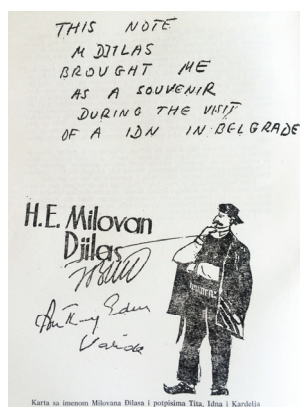 THIS NOTE
M DJILAS
BROUGHT ME
AS A SOUVENIR
DURING THE VISIT
OF A IDN IN BELGRADE
H.E. Milovan
Djilas
Anthony Eden
Karta sa imenom Milovana Đilasa i potpisima Tita, Idna i Kardelja